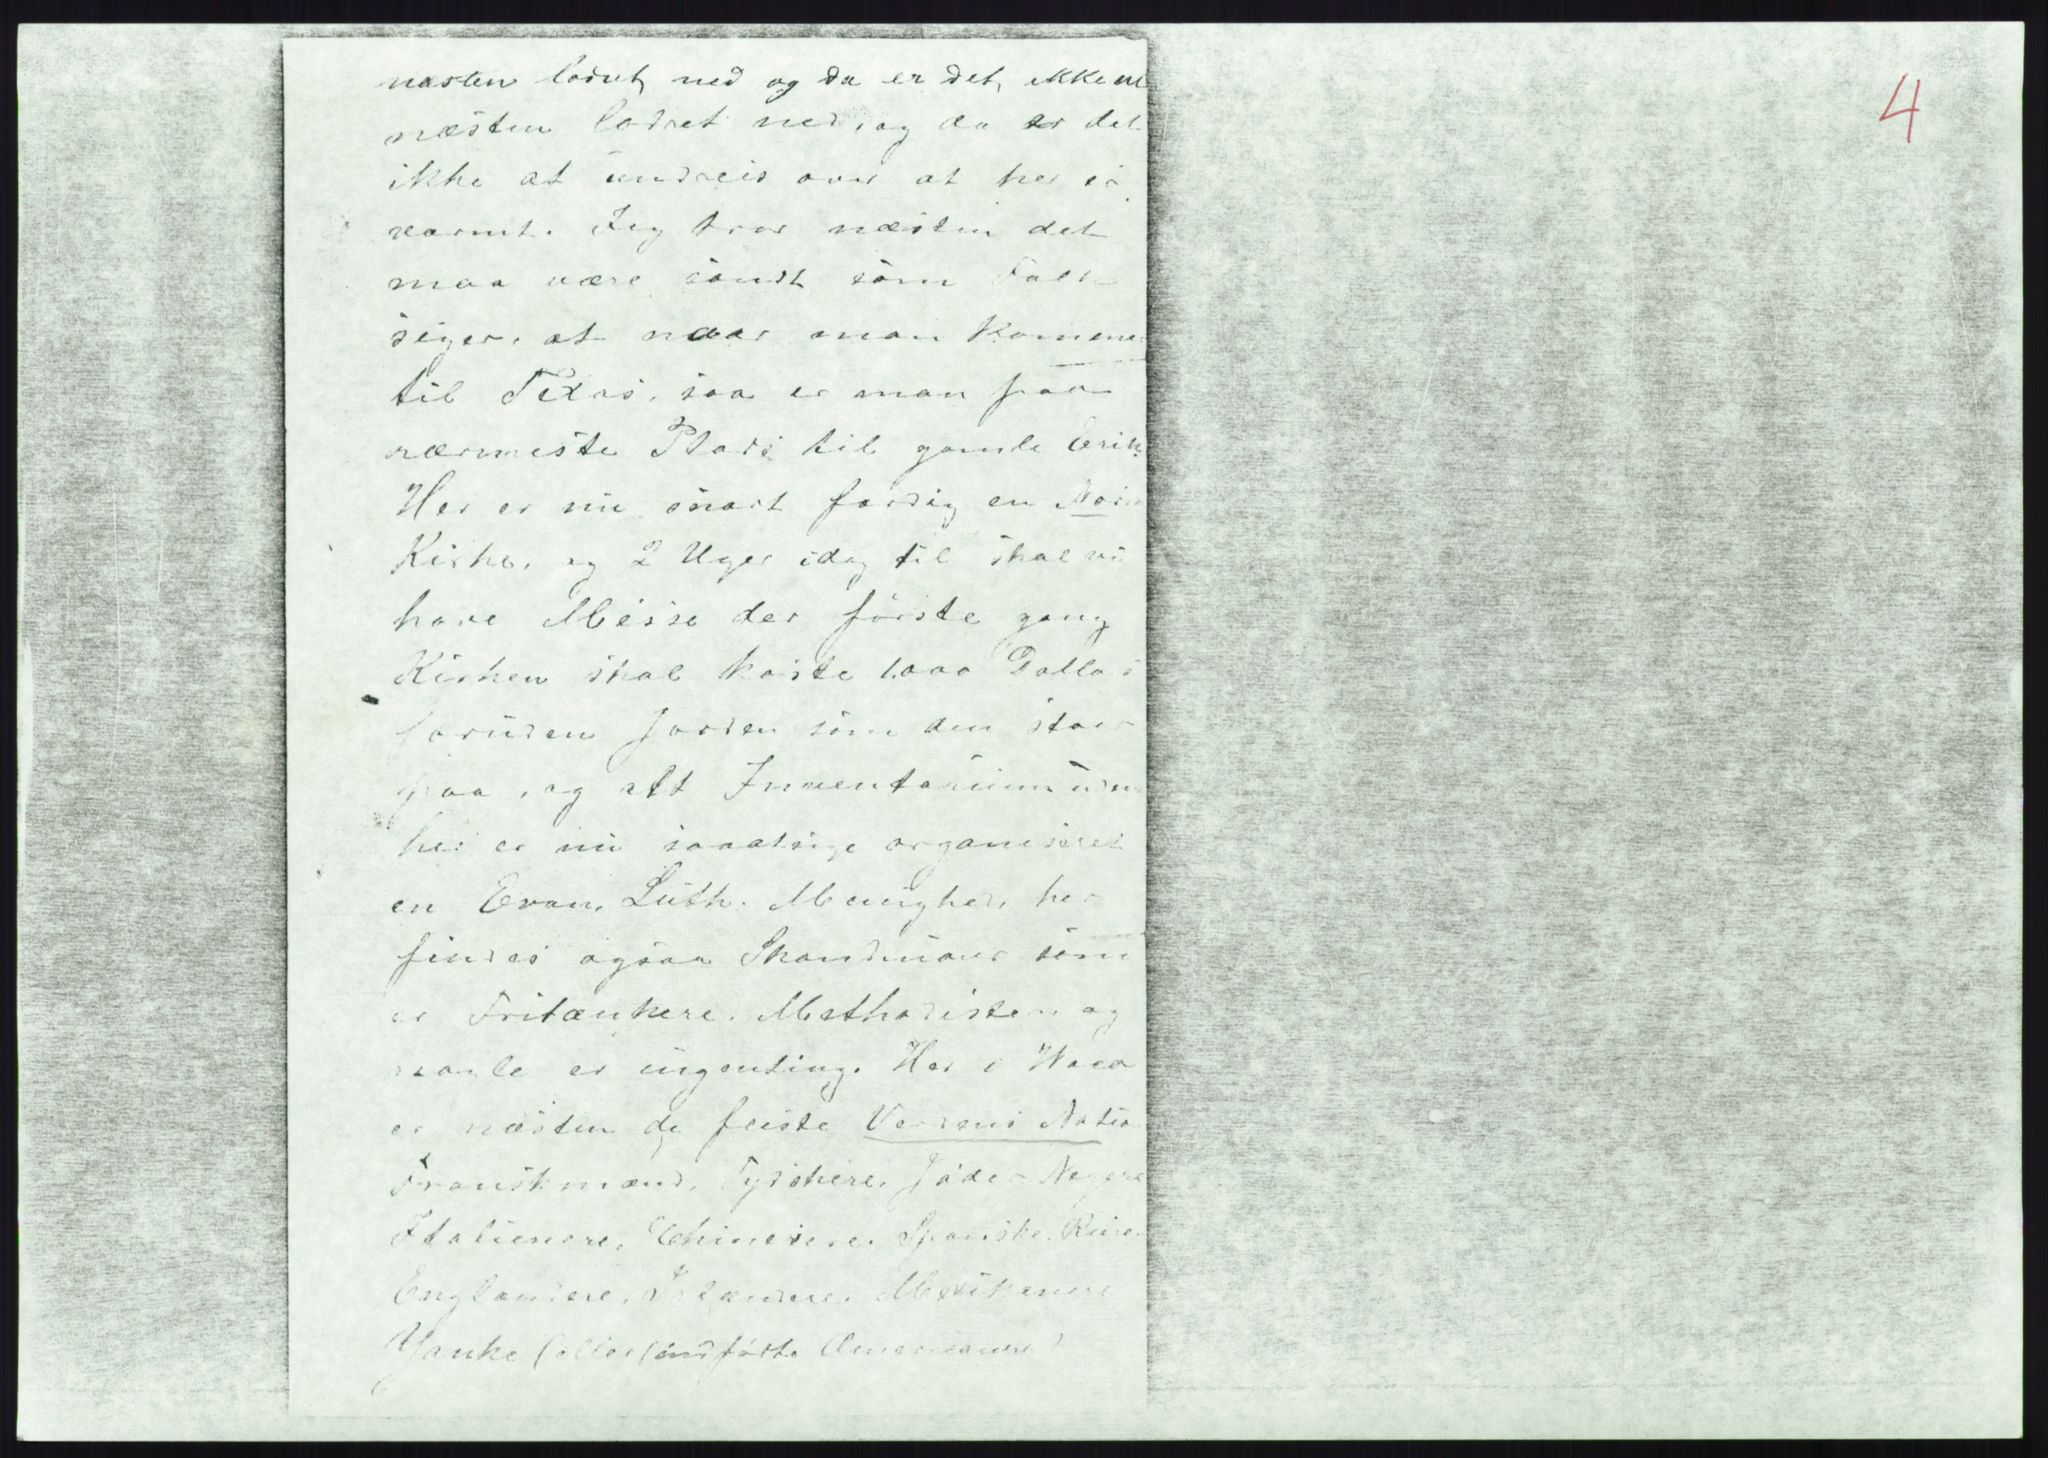 4
næsten lodret ned og da er det ikke
næsten lodret ned, og da er det
ikke at undres over at her er
varmt. Jeg tror næsten det
maa være sandt som Folk
siger, at naar man kommer
til Texas, saa er man paa
nærmeste Plads til gamle Erik.
Her er nu snart færdig en Norsk
Kirke, og 2 Uger idag til skal vi
have Messe der første gang
Kirken skal koste 1.000 Dollars
foruden Jorden som den staar
paa, og alt Inventarium uden
her er nu saaatsige organiseret
en Evan. Luth. Menighed, her
findes ogsaa Skandinaver som
er Fritænkere, Methodister og
nogle er ingenting. Her i Waco
er næsten de fleste Verdens Natio
Franskmænd, Tydskere, Jøder Negere
Italienere, Chinesere, Spanske, Russe
Englændere, Irlændere, Mexikanere
Yanke (eller indfødte Americanere)